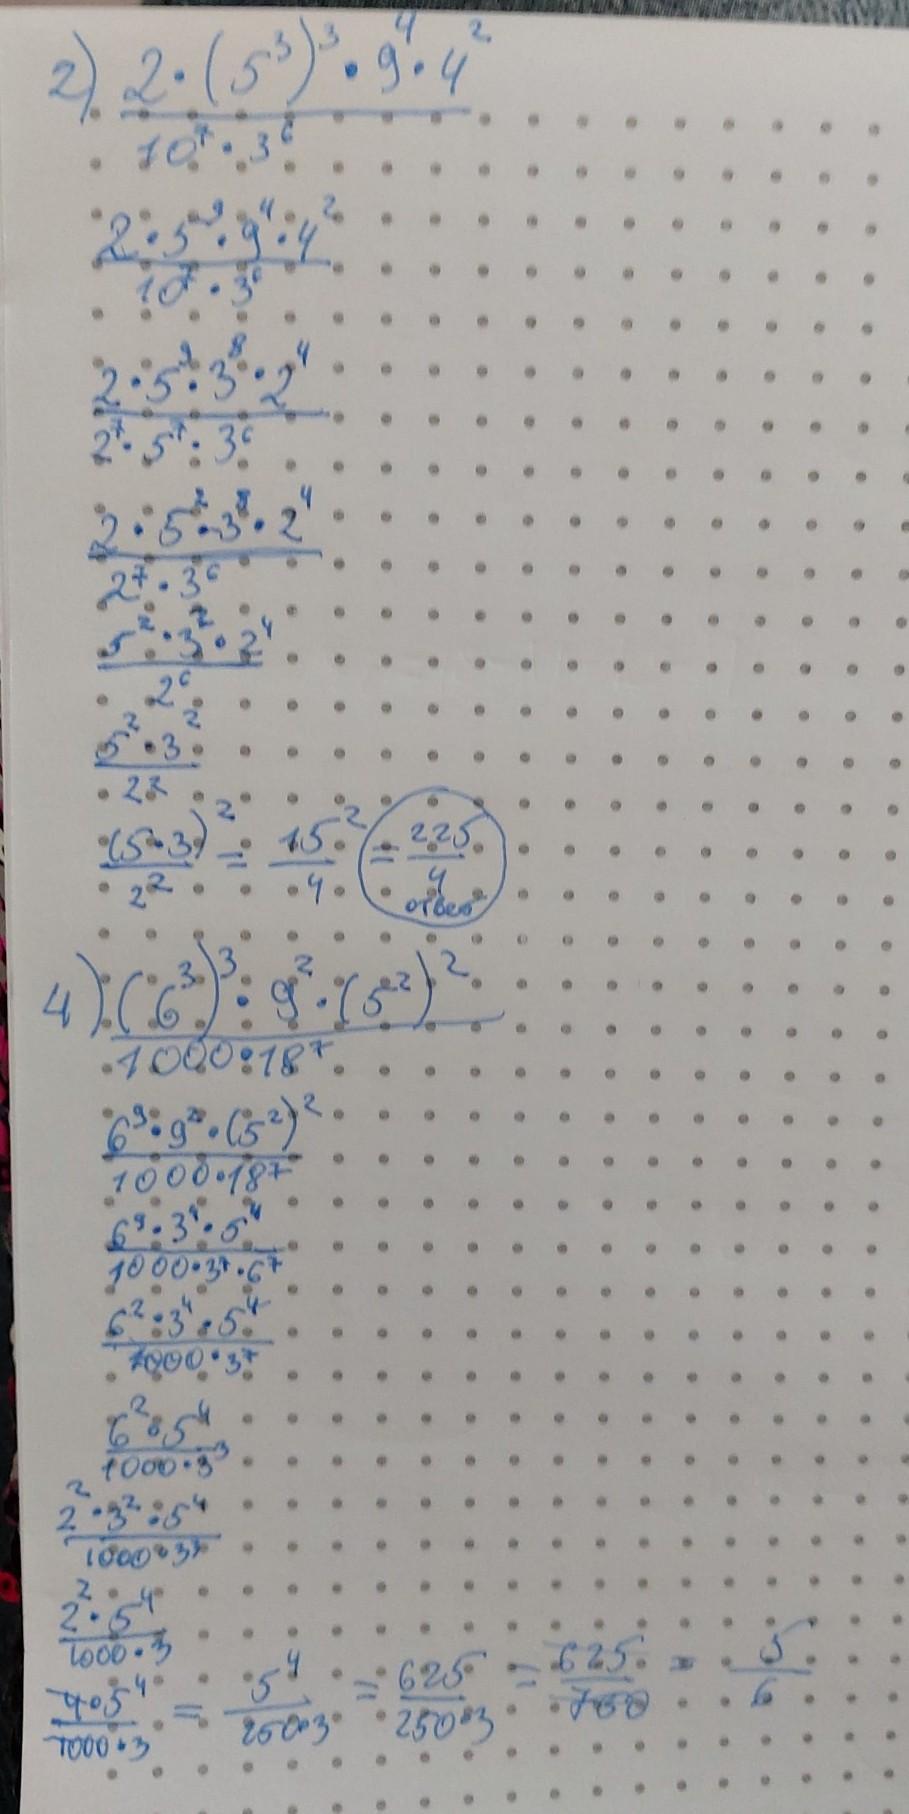 2) (2·(5³)³·9⁴·4²)/(10⁷·3⁶)
(2·5⁹·9⁴·4²)/(10⁷·3⁶)
(2·5⁹·3⁸·2⁴)/(2⁷·5⁷·3⁶)
(2·5²·3⁸·2⁴)/(2⁷·3⁶)
(5²·3²·2⁴)/2⁶
(5²·3²)/2²
(5·3)²/2² = 15²/4 = 225/4
ответ
4) ((6³)³·9²·(5²)²)/(1000·18⁷)
(6⁹·9²·(5²)²)/(1000·18⁷)
(6⁹·3⁴·5⁴)/(1000·3⁷·6⁷)
(6²·3⁴·5⁴)/(1000·3⁷)
(6²·5⁴)/(1000·3³)
(2²·3²·5⁴)/(1000·3³)
(2²·5⁴)/(1000·3)
(4·5⁴)/(1000·3) = 5⁴/(250·3) = 625/(250·3) = 625/750 = 5/6